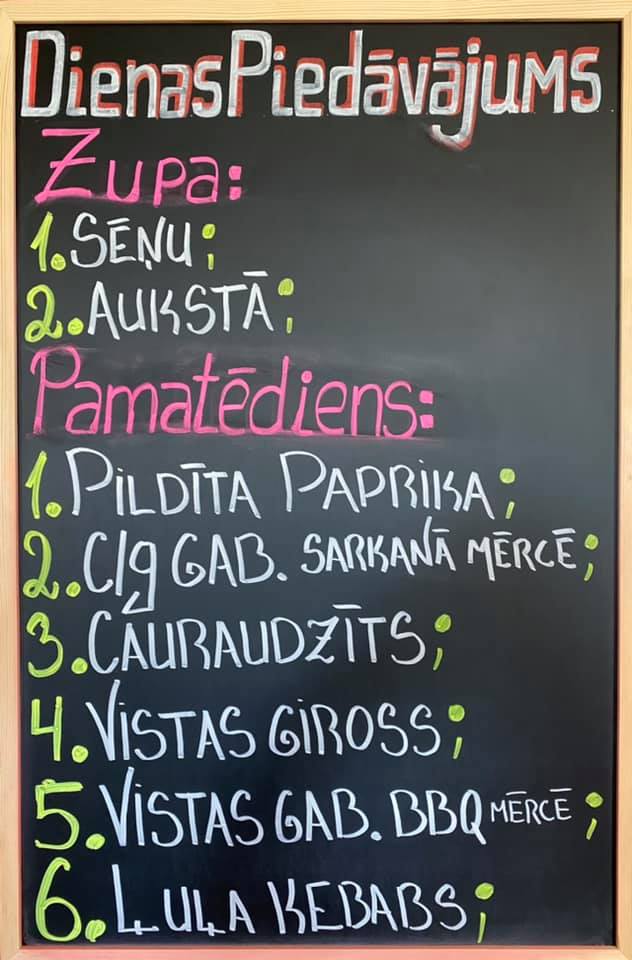 Dienas Piedāvājums
Zupa:
1. SĒŅU;
2. AUKSTĀ;
Pamatēdiens:
1. PILDĪTA PAPRIKA;
2. C/g GAB. SARKANĀ MĒRCĒ;
3. CAURAUDZĪTS;
4. VISTAS GIROSS;
5. VISTAS GAB. BBQ MĒRCĒ;
6. ĻUĻA ĶEBABS;